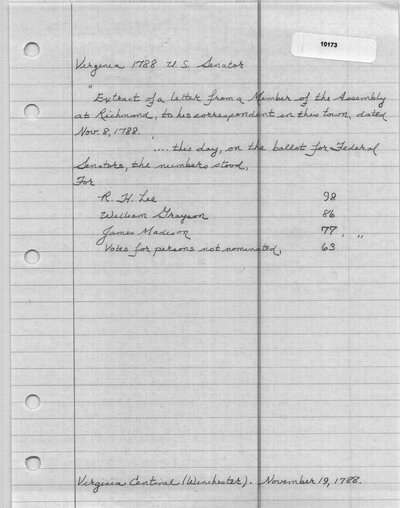 10173
Virginia 1788 U.S. Senator
"Extract of a letter from a Member of the Assembly
at Richmond, to his correspondent in this town, dated
Nov. 8, 1788.
.... this day, on the ballot for Federal
Senators, the numbers stood,
For
R. H. Lee 98
William Grayson 86
James Madison 77
Votes for persons not nominated, 63." 
Virginia Centinel (Winchester). November 19, 1788.